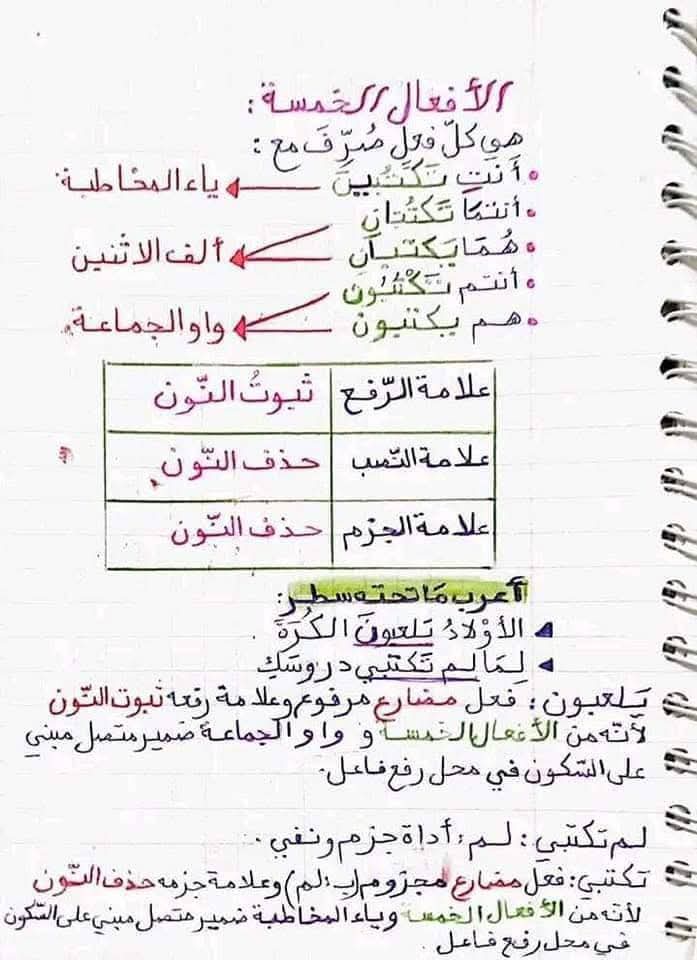 الأفعال الخمسة :
هو كلّ فعل صُرِّفَ مع :
• أنتِ تَكتُبينَ ← ياء المخاطبة
• أنتما تَكتُبانِ
• هُمَا يَكتبانِ ← ألف الاثنين
• أنتم تَكْتُبُونَ
• هم يكتبون ← واو الجماعة
علامة الرّفع ثبوتُ النّون
علامة النّصب حذف النّون
علامة الجزم حذف النّون
أعرب مَا تحته سطر :
◄ الأوْلادُ يَلعبونَ الكُرَةَ .
◄ لِمَا لم تَكتبي دروسَكِ
يَلعبون : فعل مضارع مرفوع وعلامة رفعه ثبوت النّون
لأنّه من الأفعال الخمسة و واو الجماعة ضمير متصل مبني
على السّكون في محل رفع فاعل .
لم تكتبي : لم : أداة جزم ونفي .
تكتبي : فعل مضارع مجزوم (بـ : لم) وعلامة جزمه حذف النّون
لأنّه من الأفعال الخمسة وياء المخاطبة ضمير متصل مبني على السّكون
في محل رفع فاعل .